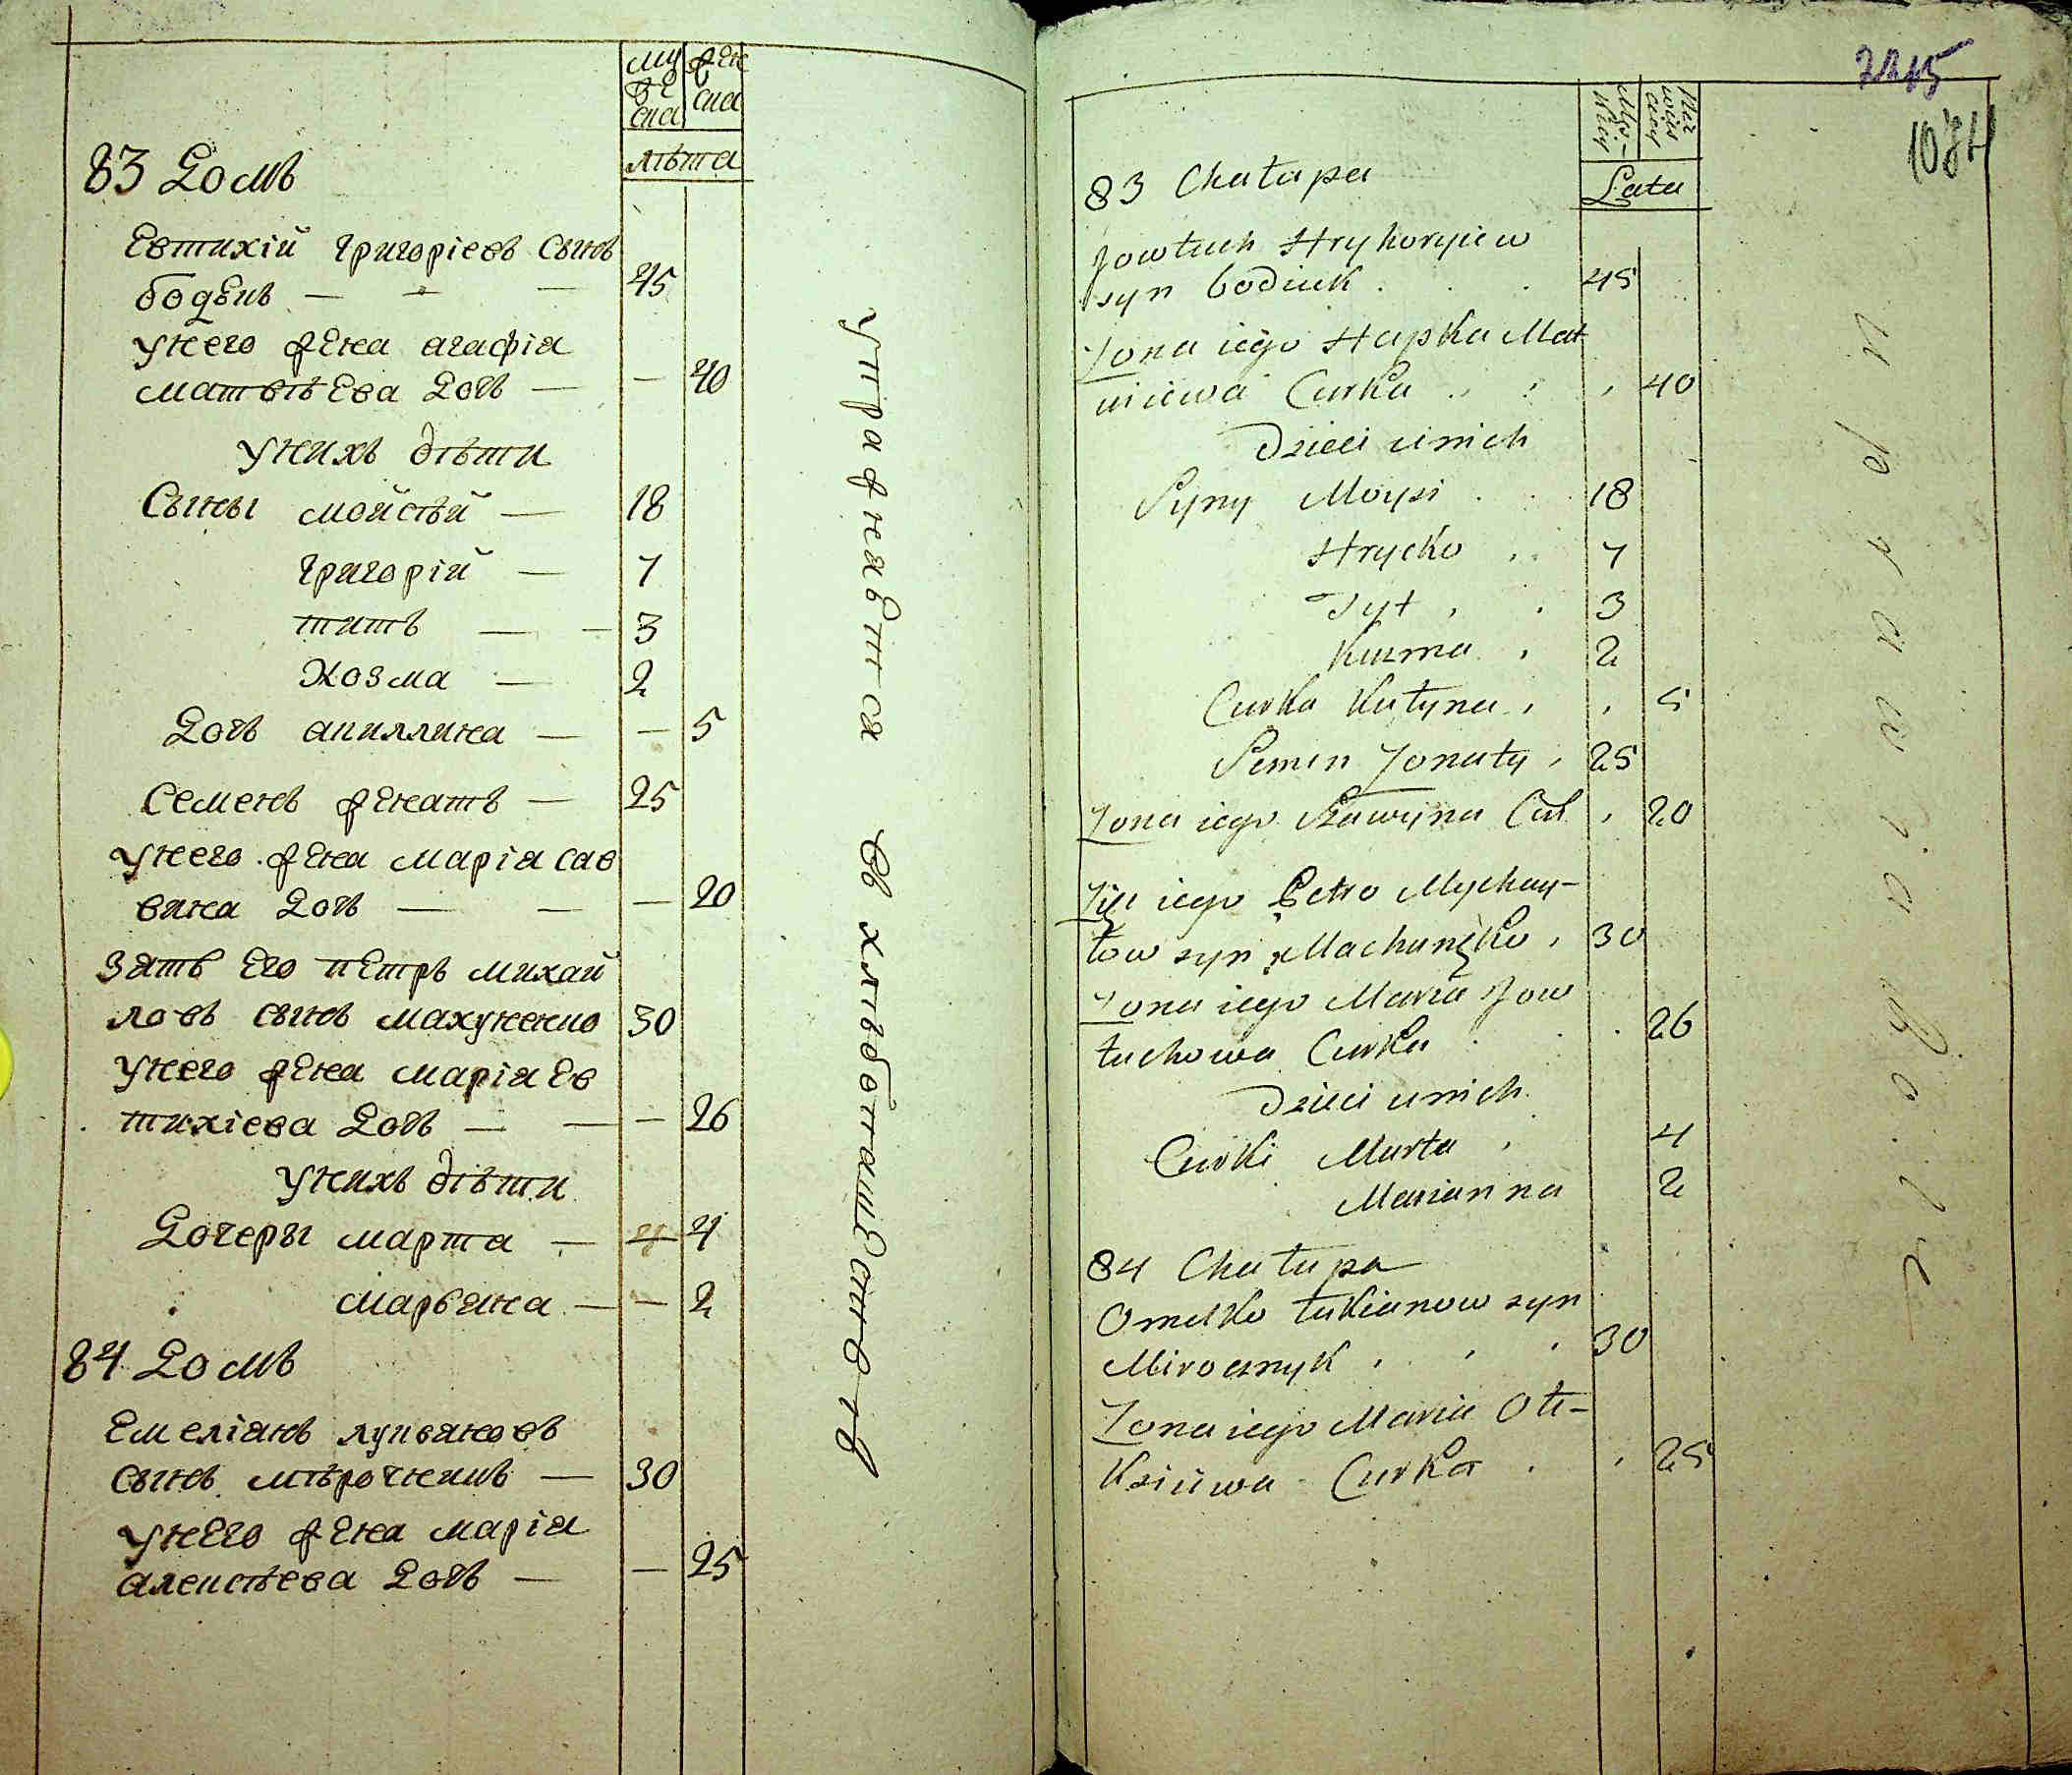 му жес ка
жен ска
лѣта
83 Домъ
Евтихій григоріевъ сынъ
бодюкъ — — — 45
Унего жена агафіа
матвѣева дочь — — 40
Унихъ дѣти
Сыны мойсѣй — 18
григорій — 7
титъ — — 3
козма — 2
Дочь акиллина — — 5
Семенъ женатъ — 25
Унего жена марія сав
вина дочь — — — 20
Зять его петръ михай
ловъ сынъ махуненко 30
Унего жена маріа ев
тихіева дочь — — — 26
Унихъ дѣти
Дочеры марта — 4
марьяна — — 2
84 Домъ
Емеліанъ лукьяновъ
сынъ мѣрочникъ — 30
Унего жена маріа
алексѣева дочь — — 25
упражняется въ хлѣбопашествѣ
2215
1074
Męz-
kiey
Lata
83 Chałupa
Jowtuch Hryhoryiew
syn bodiuk . . . 45
Żona iego Hapka Mat
wiiewa Curka . . , 40
Dzieci unich
Syny Moysi . . 18
Hrycko . . 7
Tyt . . 3
Kuzma . 2
Curka Kułyna . , 5
Semen Żonaty . 25
Żona iego Sawyna Cur , 20
Zięc iego Petro Mychay-
łow syn Machunęko . 30
Żona iego Maria Jow
tuchowa Curka . . . 26
Dzieci unich
Curki Marta . 4
Marianna 2
84 Chałupa
Omelko łukianow syn
Mirocznyk . . . 30
Żona iego Maria Ole-
ksiiwa Curka . , 25
uprawia Role